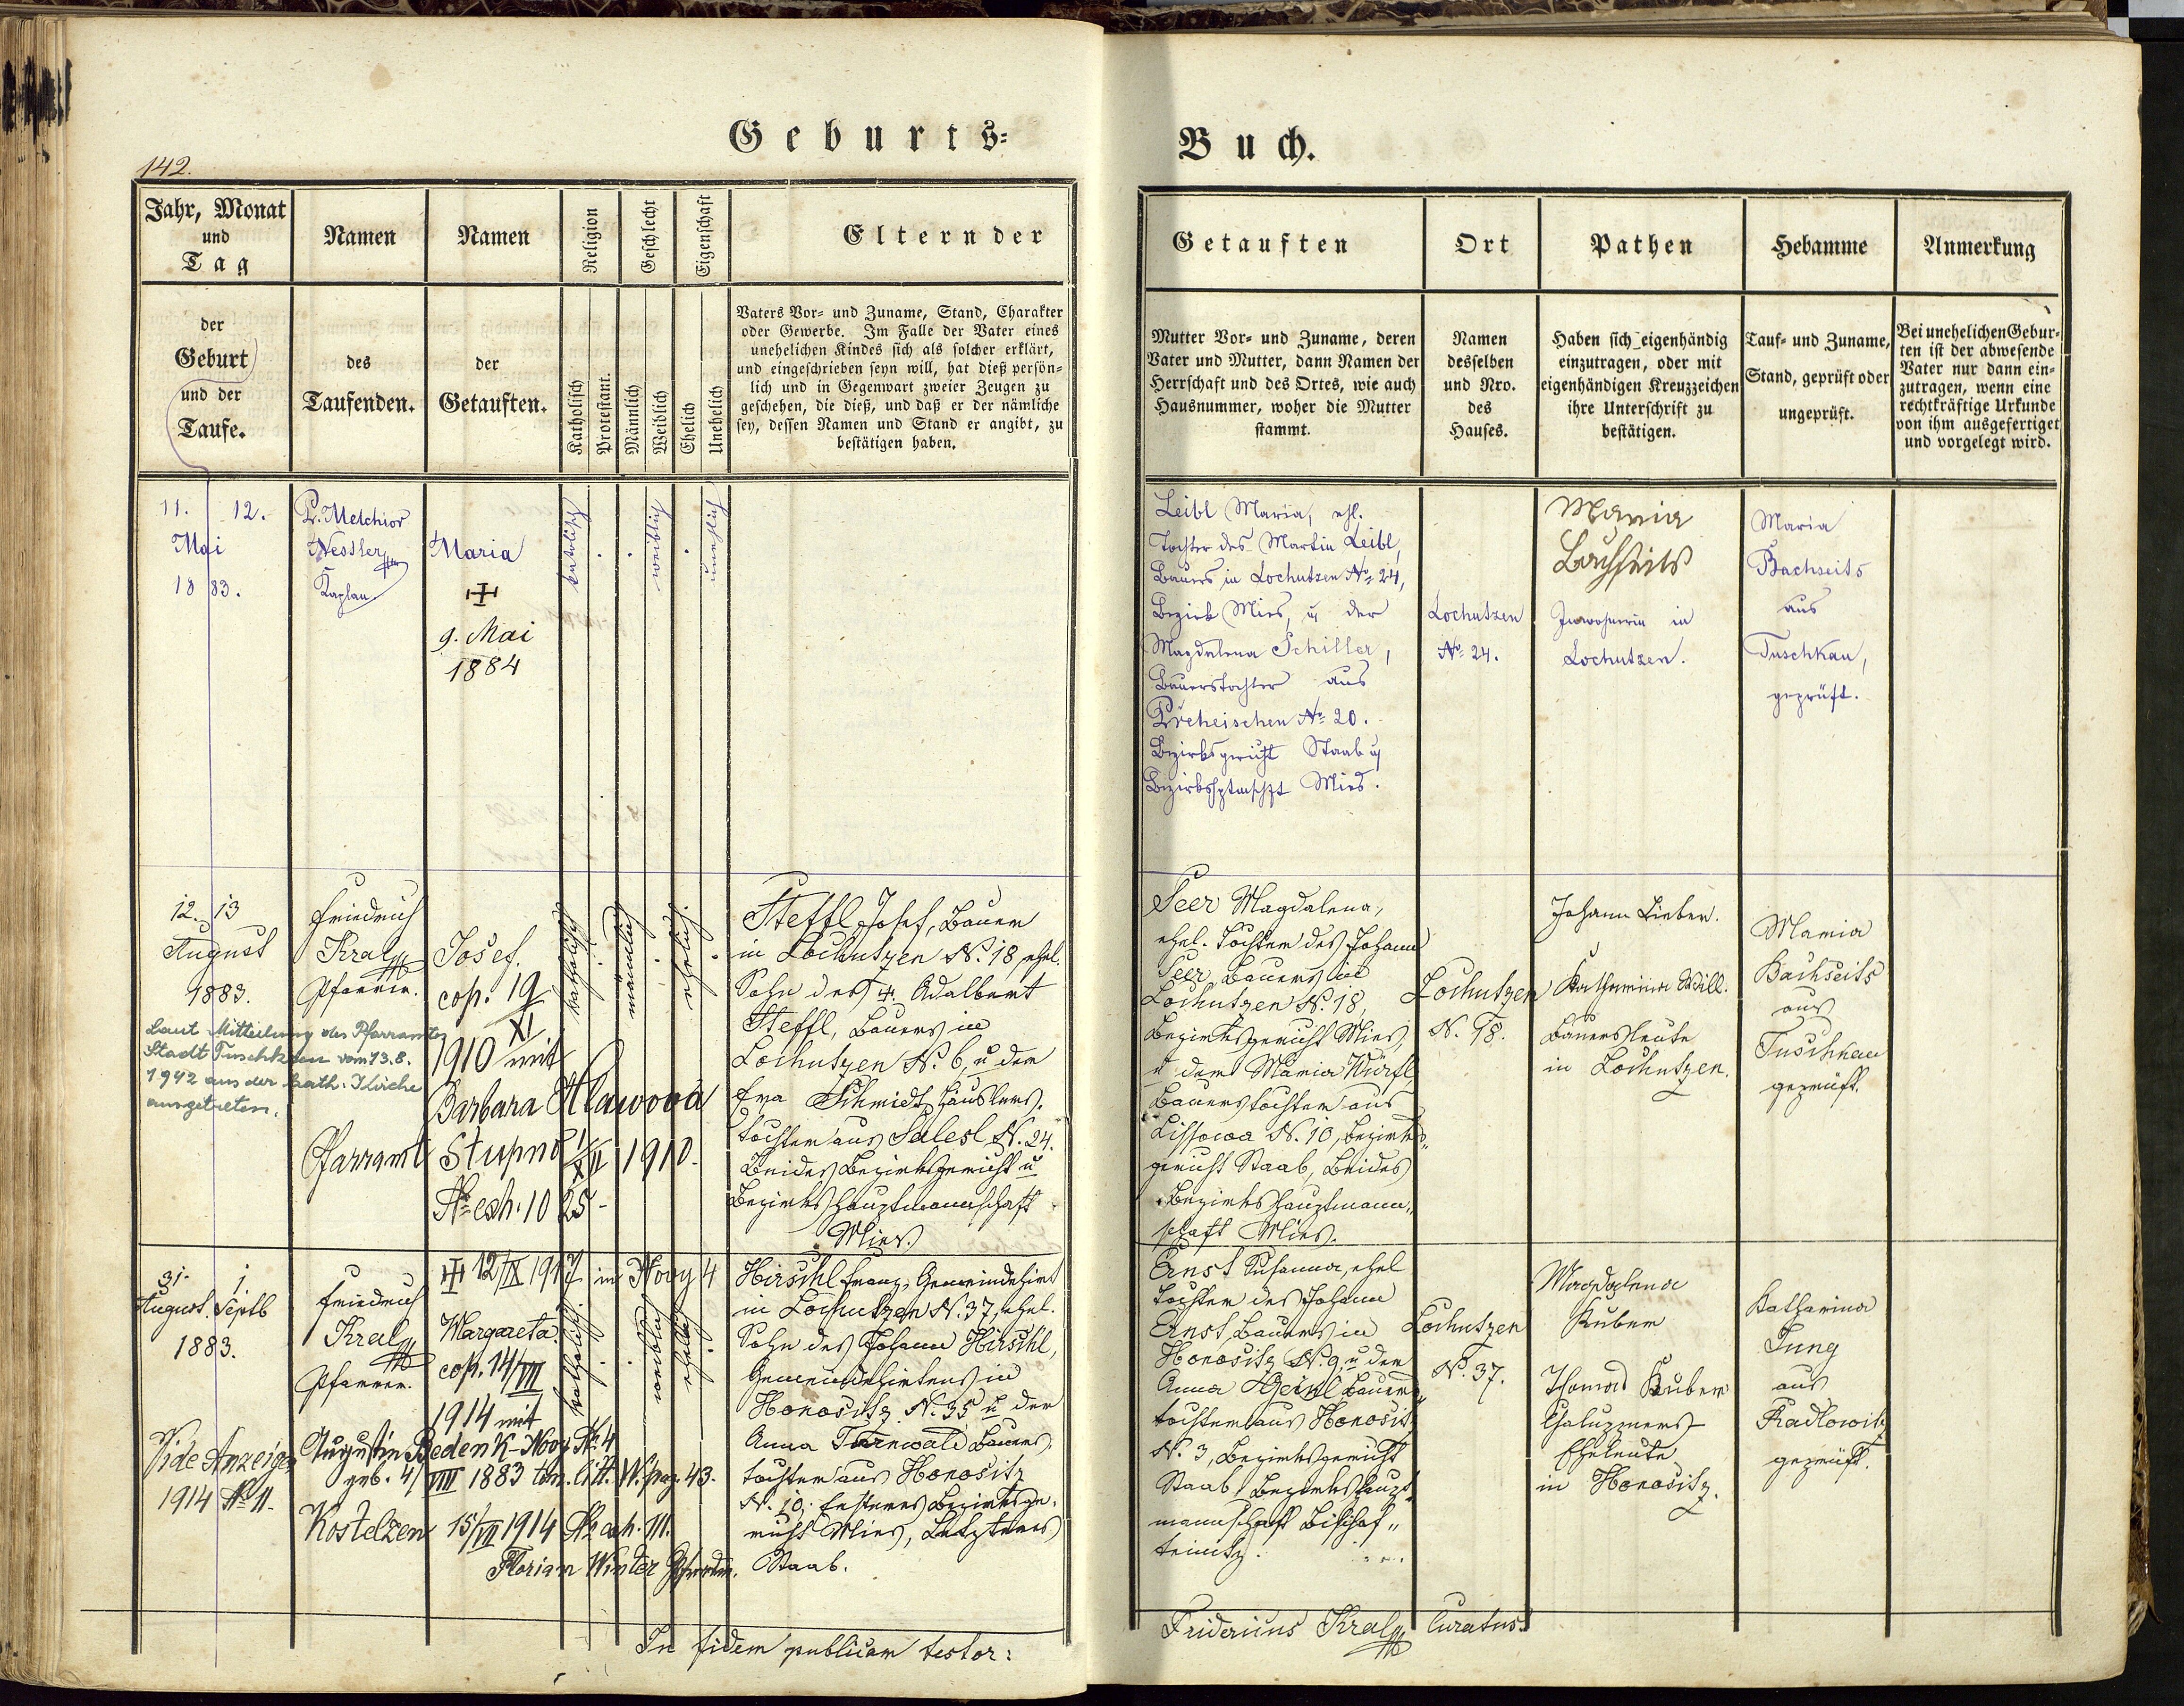 Geburts-
Buch.
142.
Jahr, Monat
und
Tag
Namen
Namen
Religion
Geschlecht
Eigenschaft
Eltern der
der
Geburt
und der
Taufe.
des
Taufenden.
der
Getauften.
Katholisch
Protestant.
Männlich
Weiblich
Ehelich
Unehelich
Vaters Vor- und Zuname, Stand, Charakter
oder Gewerbe. Im Falle der Vater eines
unehelichen Kindes sich als solcher erklärt,
und eingeschrieben seyn will, hat dieß persön-
lich und in Gegenwart zweier Zeugen zu
geschehen, die dieß, und daß er der nämliche
sey, dessen Namen und Stand er angibt, zu
bestätigen haben.
Getauften
Ort
Pathen
Hebamme
Anmerkung
Mutter Vor- und Zuname, deren
Vater und Mutter, dann Namen der
Herrschaft und des Ortes, wie auch
Hausnummer, woher die Mutter
stammt.
Namen
desselben
und Nro.
des
Hauses.
Haben sich eigenhändig
einzutragen, oder mit
eigenhändigen Kreuzzeichen
ihre Unterschrift zu
bestätigen.
Tauf- und Zuname,
Stand, geprüft oder
ungeprüft.
Bei unehelichen Gebur-
ten ist der abwesende
Vater nur dann ein-
zutragen, wenn eine
rechtkräftige Urkunde
von ihm ausgefertiget
und vorgelegt wird.
11. 12.
Mai
1883.
P. Melchior
Nessler
Kaplan
Maria
9. Mai
1884
katolisch
weiblich
unehlich
Leibl Maria, ehl.
Tochter des Martin Leibl,
Bauers in Lochutzen No 24,
Bezirk Mies, u der
Magdalena Schiller,
Bauerstochter aus
Prcheischen No 20.
Bezirksgericht Staab u
Bezirkshptmschft Mies.
Lochutzen
No 24.
Maria
Bachseits
Inwohnerin in
Lochutzen.
Maria
Bachseits
aus
Tuschkau,
geprüft.
12. 13
August
1883.
Laut Mitteilung des Pfarramtes
Stadt Tuschkau vom 13.8.
1942 aus der kath. Kirche
ausgetreten.
Friedrich
Kral
Pfarrer.
Josef.
cop. 19
XI
1910 mit
Barbara Hlawova
Pfarramt Stupno 1/XII 1910.
No exh. 1025-
katholisch
männlich
ehelich
Steffl Josef, Bauer
in Lochutzen N. 18, ehel.
Sohn des Adalbert
Steffl, Bauers in
Lochutzen N. 6, u der
Eva Schmidt, Häuslers-
tochter aus Sulesl N. 24.
Beides Bezirksgericht u
Bezirkshauptmannschaft
Mies.
Seer Magdalena,
ehel. Tochter des Johann
Seer, Bauers in
Lochutzen N. 18,
Bezirksgericht Mies,
u der Maria Würfl,
Bauerstochter aus
Lissowa N. 10, Bezirks-
gericht Staab, Beides
Bezirkshauptmann-
schaft Mies.
Lochutzen
N. 18.
Johann Lieber.
Katharina Will.
Bauersleute
in Lochutzen.
Maria
Bachseits
aus
Tuschkau
geprüft.
31. 1.
August. Septb
1883.
Vide Anzeigen
1914 No 11.
Friedrich
Kral
Pfarrer.
12/IX 1917 in Novy 4
Margareta.
cop. 14/VII
1914 mit
Augustin Beden K-Novy No 4
geb. 4/VIII 1883 tom. litt. W. pag. 43.
Kostelzen 15/VII 1914 No exh. 111.
Florian Winter
katholisch
weiblich
ehelich
Hirschl Franz, Gemeindehirt
in Lochutzen N. 37, ehel.
Sohn des Johann Hirschl,
Gemeindehirtens in
Honositz N. 35 u der
Anna Turnwald Bauers-
tochter aus Honositz
N. 10; Ersteres Bezirksge-
richt Mies, Letzteres
Staab.
Ernst Susanna, ehel
Tochter des Johann
Ernst, Bauers in
Honositz N. 9, u der
Anna Heinl Bauers-
tochter aus Honositz
N. 3, Bezirksgericht
Staab, Bezirkshaupt-
mannschaft Bischof-
teinitz.
Lochutzen
N. 37.
Magdalena
Kuber
Thomas Kuber
Chaluppners-
Eheleute
in Honositz.
Katharina
Jung
aus
Radlowitz
geprüft.
In fidem publicam testor:
Fridericus Kral Curatus.